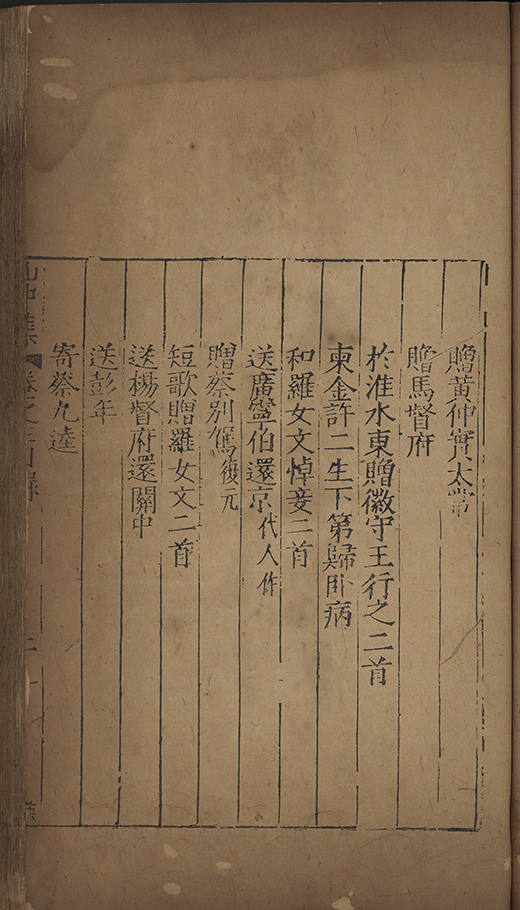 贈黃仲實太常
贈馬督府
於淮水東贈徽守王行之二首
柬金許二生下第歸卧病
和羅女文悼妾二首
送廣寧伯還京代人作
贈蔡別駕復元
短歌贈羅女文二首
送楊督府還關中
送彭年
寄蔡九逵